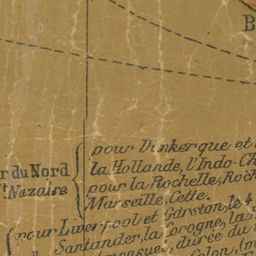 B
pour Dunkerque et
r du Nord la Hollande, l'Indo-Ch
t Nazaire pour la Rochelle, Roch
Marseille, Cette.
pour Liverpool et Garston, le 4
Santander, la
durée du
Colon, (m